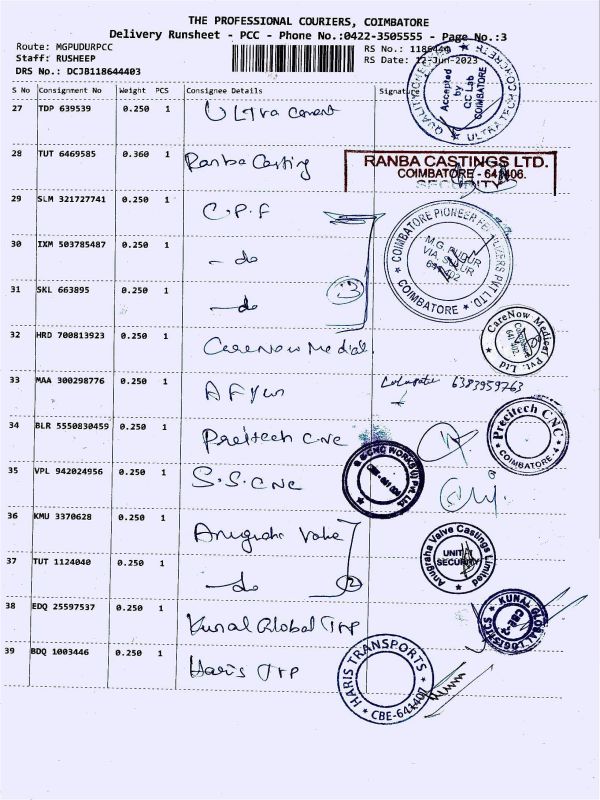 THE PROFESSIONAL COURIERS, COIMBATORE
Delivery Runsheet - PCC - Phone No.:0422-3505555 - Page No.:3
Route: MGPUDURPCC
RS No.: 1186440
Staff: RUSHEEP
RS Date: 12-Jun-2023
DRS No.: DCJB118644403
S No Consignment No Weight PCS Consignee Details Signature
27 TDP 639539 0.250 1 Ultra cement
QUALITY CHECKED Accepted by QC Lab COIMBATORE ULTRATECH CONCRETE
28 TUT 6469585 0.360 1 Ranba Casting
RANBA CASTINGS LTD.
COIMBATORE - 641406.
SECURITY
29 SLM 321727741 0.250 1 C.P.F
30 IXM 503785487 0.250 1 - do
31 SKL 663895 0.250 1 - do 3
COIMBATORE PIONEER FERTILIZERS PVT LTD. M.G. PUDUR VIA, SULUR 641 402 COIMBATORE
32 HRD 700813923 0.250 1 CareNow Medical.
CareNow Medical Pvt. Ltd Coimbatore 641 402.
33 MAA 300298776 0.250 1 6383959763
34 BLR 5550830459 0.250 1 Precitech CNC
Precitech CNC COIMBATORE-4
35 VPL 942024956 0.250 1 S.S.CNC
CNC WORKS (I) Pvt Ltd
36 KMU 3370628 0.250 1 Anugraha Valve
37 TUT 1124040 0.250 1 - do 2
Anugraha Valve Castings Limited UNIT SECURITY
38 EDQ 25597537 0.250 1 Kunal Global Trp
KUNAL GLOBAL LOGISTICS
39 BDQ 1003446 0.250 1 Haris Trp
HARIS TRANSPORTS CBE-641402